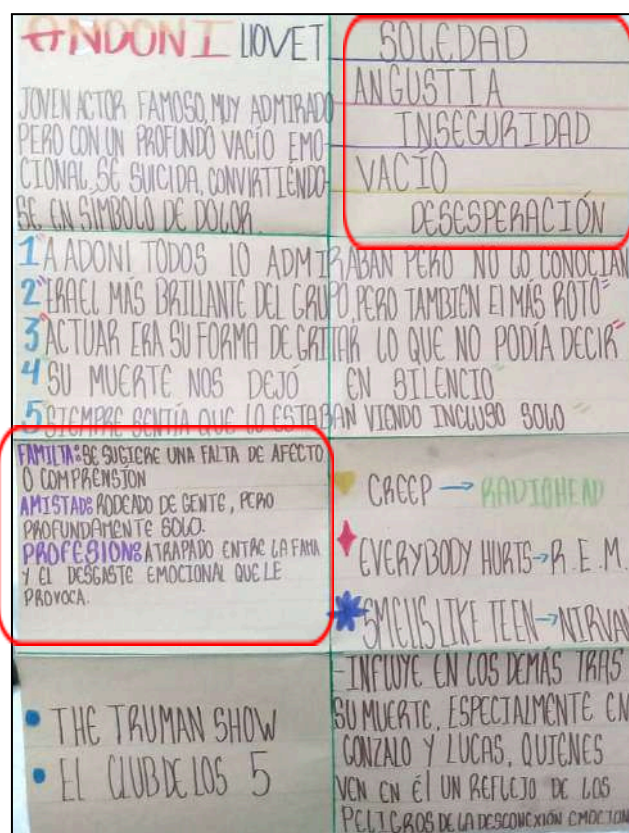 ANDONI LLOVET
JOVEN ACTOR FAMOSO, MUY ADMIRADO
PERO CON UN PROFUNDO VACÍO EMO-
CIONAL, SE SUICIDA, CONVIRTIÉNDO-
SE EN SIMBOLO DE DOLOR.
SOLEDAD
ANGUSTIA
INSEGURIDAD
VACÍO
DESESPERACIÓN
1"A ADONI TODOS LO ADMIRABAN PERO NO LO CONOCIAN
2"ERA EL MÁS BRILLANTE DEL GRUPO, PERO TAMBIEN El MÁS ROTO"
3"ACTUAR ERA SU FORMA DE GRITAR LO QUE NO PODÍA DECIR"
4"SU MUERTE NOS DEJÓ EN SILENCIO"
5"SIEMPRE SENTÍA QUE LO ESTABAN VIENDO INCLUSO SOLO"
FAMILIA: SE SUGIERE UNA FALTA DE AFECTO
O COMPRENSIÓN
AMISTAD: RODEADO DE GENTE, PERO
PROFUNDAMENTE SOLO.
PROFESION: ATRAPADO ENTRE LA FAMA
Y EL DESGASTE EMOCIONAL QUE LE
PROVOCA.
CREEP → RADIOHEAD
EVERYBODY HURTS → R.E.M.
SMELLS LIKE TEEN → NIRVAN
• THE TRUMAN SHOW
• EL CLUB DE LOS 5
-INFLUYE EN LOS DEMÁS TRAS
SU MUERTE, ESPECIALMENTE EN
GONZALO Y LUCAS, QUIENES
VEN EN ÉL UN REFLEJO DE LOS
PELIGROS DE LA DESCONEXIÓN EMOCION